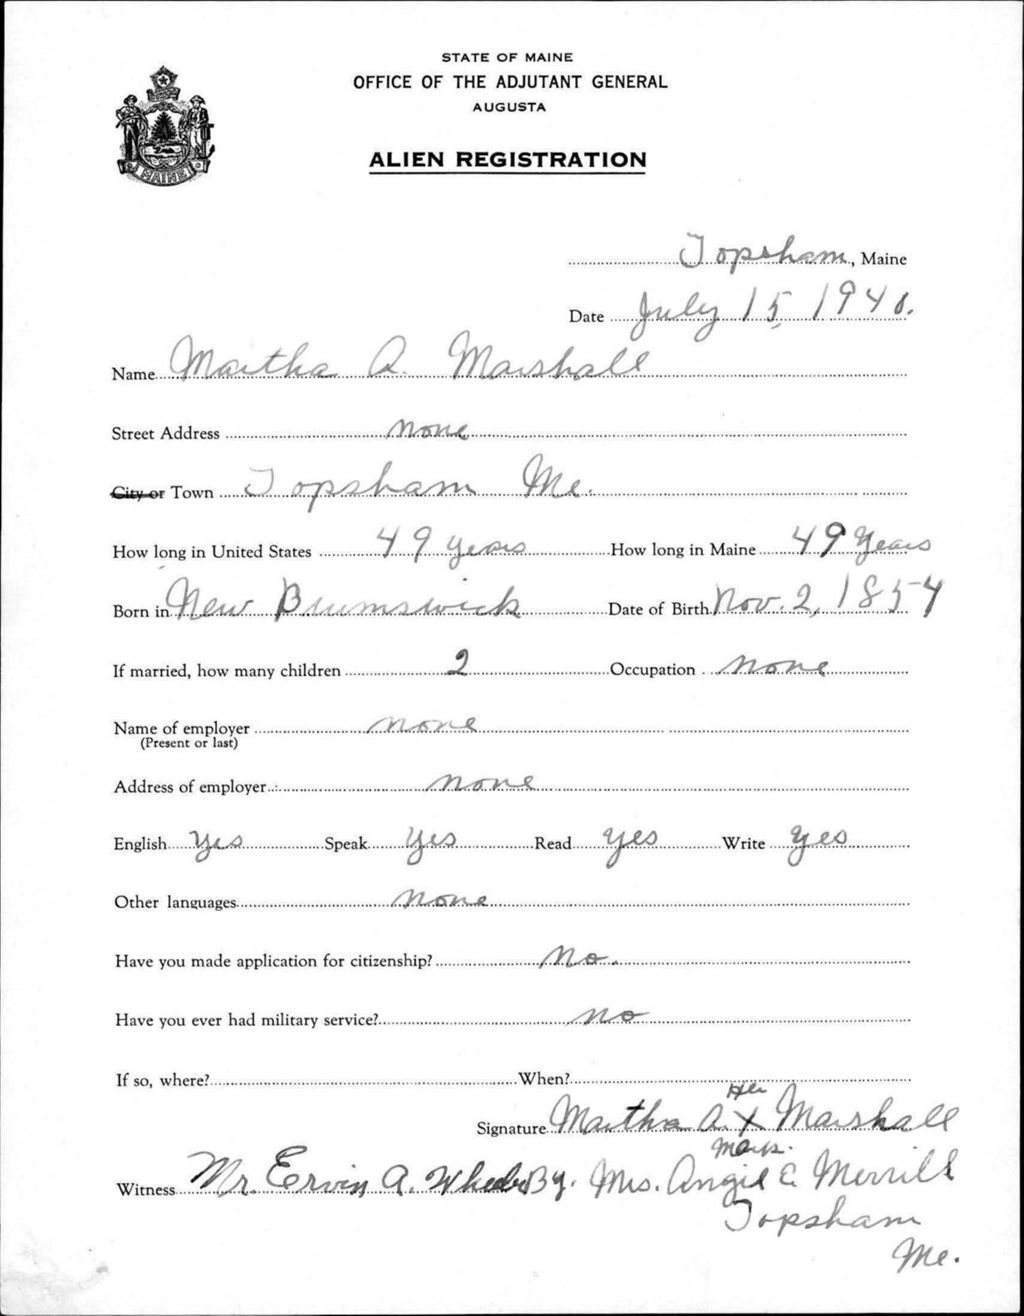 STATE OF MAINE
OFFICE OF THE ADJUTANT GENERAL
AUGUSTA
ALIEN REGISTRATION
MAINE
Topsham, Maine
Date July 15, 1940.
Name Martha A. Marshall
Street Address None
City or Town Topsham Me.
How long in United States 49 years How long in Maine 49 Years
Born in New Brumswick Date of Birth Nov. 2, 1854
If married, how many children 2 Occupation None
Name of employer none
(Present or last)
Address of employer none
English Yes Speak Yes Read yes Write yes
Other languages None
Have you made application for citizenship? No.
Have you ever had military service? no
If so, where? When?
Her
Signature Martha A. X Marshall
Mark.
Witness Mr. Ervin A. By. Mrs. Angie E. Merrill
Topsham
Me.